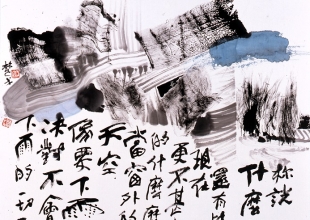 你說
什麼
還有
現在
更不甚
的什麼
當窗外的
天空
像要下雨
決對不會
的一切
楚戈